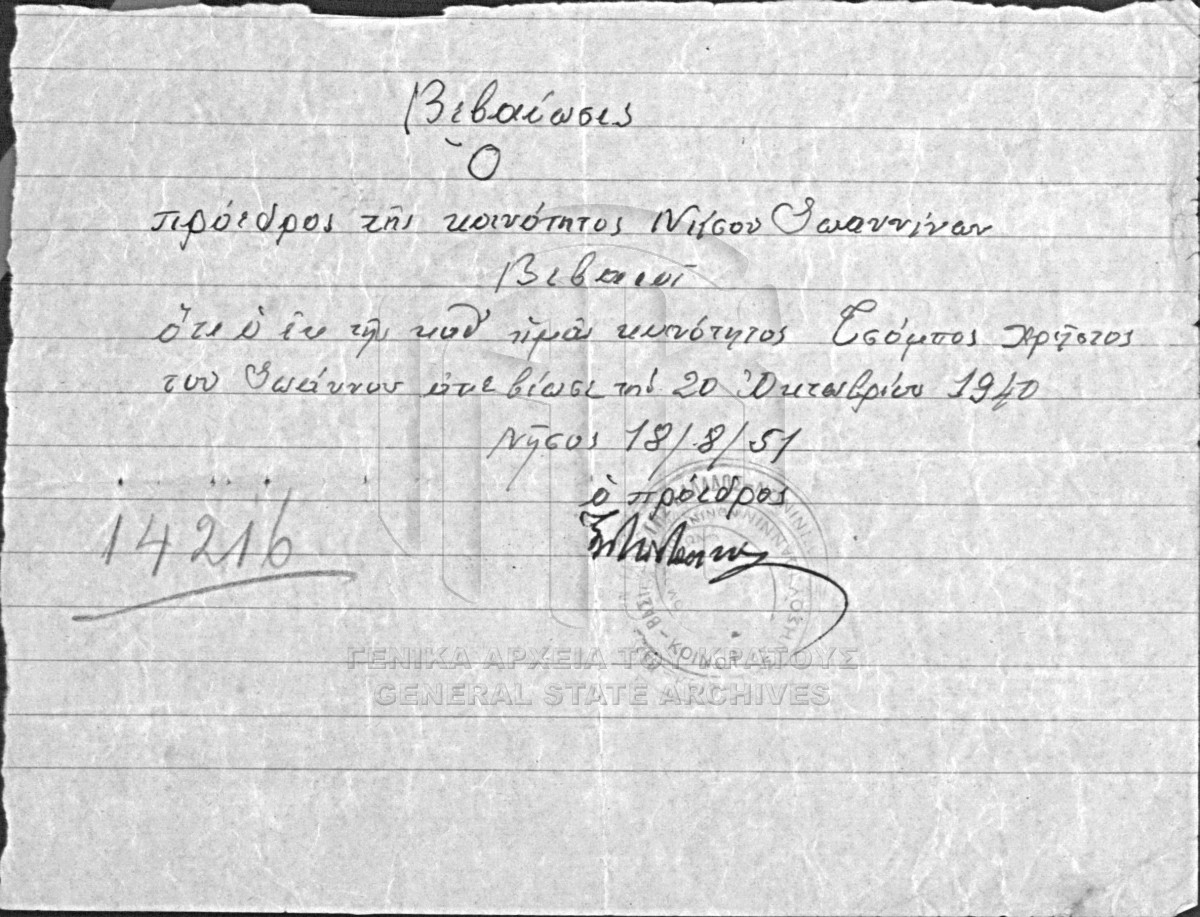 Βεβαίωσις
Ὁ
πρόεδρος τῆς κοινότητος Νήσου Ἰωαννίνων
Βεβαιοῖ
ὅτι ὁ ἐκ τῆς καθ' ἡμᾶς κοινότητος Τσόμπος Χρῆστος
του Ἰωάννου ἀπεβίωσε την 20 Ὀκτωβρίου 1940
Νῆσος 18/8/51
ὁ πρόεδρος
14216
ΓΕΝΙΚΑ ΑΡΧΕΙΑ ΤΟΥ ΚΡΑΤΟΥΣ
GENERAL STATE ARCHIVES